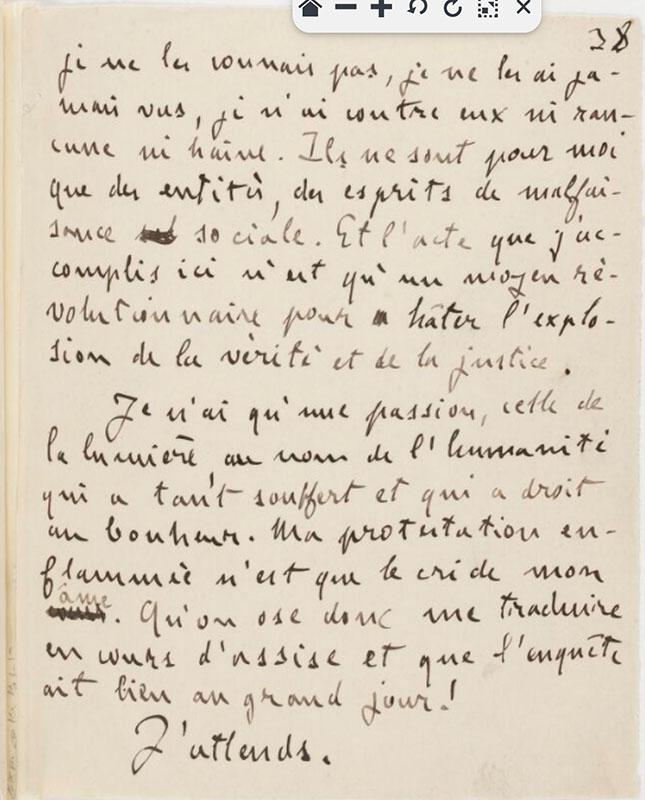 38
je ne les connais pas, je ne les ai ja-
mais vus, je n'ai contre eux ni ran-
cune ni haine. Ils ne sont pour moi
que des entités, des esprits de malfai-
sance sociale. Et l'acte que j'ac-
complis ici n'est qu'un moyen ré-
volutionnaire pour hâter l'explo-
sion de la vérité et de la justice.
Je n'ai qu'une passion, celle de
la lumière, au nom de l'humanité
qui a tant souffert et qui a droit
au bonheur. Ma protestation en-
flammée n'est que le cri de mon
âme. Qu'on ose donc me traduire
en cours d'assise et que l'enquête
ait lieu au grand jour!
J'attends.